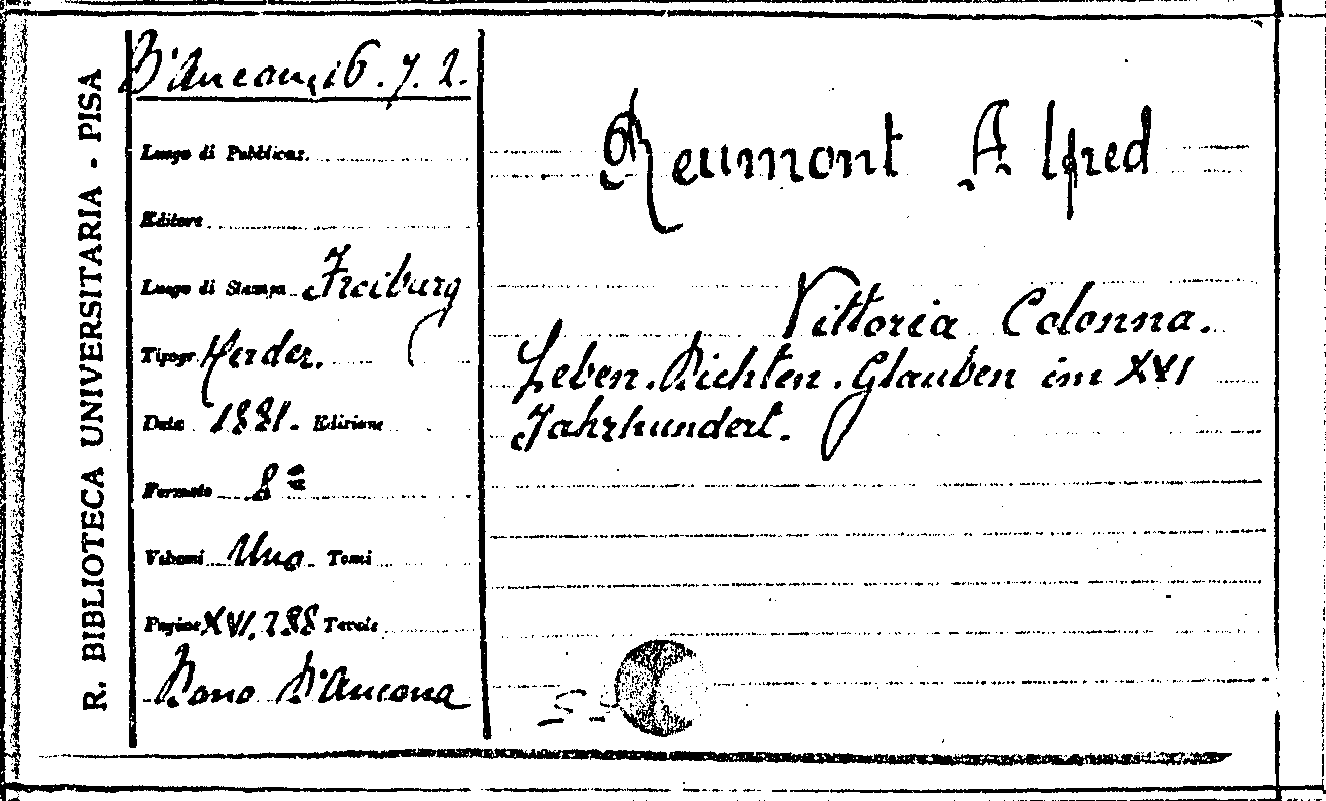 R. BIBLIOTECA UNIVERSITARIA - PISA
D'Ancona 16.7.2.
Luogo di Pubblicaz.
Editore
Luogo di Stampa Freiburg
Tipogr. Herder.
Data 1881. Edizione
Formato 8°
Volumi Uno Tomi
Pagine XVI, 288 Tavole
Dono D'Ancona
Reumont Alfred
Vittoria Colonna.
Leben. Dichten. Glauben im XVI
Jahrhundert.